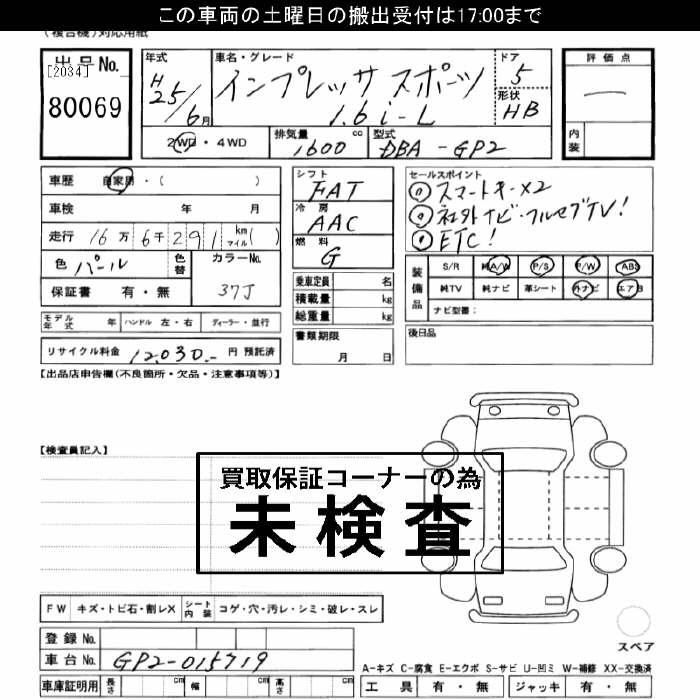 この車両の土曜日の搬出受付は17:00まで
(複合機)対応用紙
出品No.
[2034]
80069
年式
H25/6月
車名・グレード
インプレッサ スポーツ
1.6 i-L
ドア
5
形状
HB
評価点
内装
2WD・4WD
排気量
1600 cc
型式
DBA-GP2
車歴 自家用・( )
車検 年 月
走行 16万6千291 km マイル( )
色 パール
色替
カラーNo.
37J
保証書 有・無
モデル年式 年 ハンドル 左・右 ディーラー・並行
リサイクル料金 12,030.- 円 預託済
シフト
FAT
冷房
AAC
燃料
G
乗車定員 名
積載量 kg
総重量 kg
書類期限
月 日
セールスポイント
スマートキーX2
社外ナビ・フルセグTV!
ETC!
装備品
S/R 純A/W P/S P/W ABS
純TV 純ナビ 革シート 外ナビ エアB
ナビ型番:
後日品
【出品店申告欄(不良箇所・欠品・注意事項等)】
【検査員記入】
買取保証コーナーの為
未検査
FW キズ・トビ石・割レX シート内装 コゲ・穴・汚レ・シミ・破レ・スレ
登録No.
車台No. GP2-015719
車庫証明用 長さ cm 幅 cm 高さ cm
スペア
A-キズ C-腐食 E-エクボ S-サビ U-凹ミ W-補修 XX-交換済
工具 有・無 ジャッキ 有・無